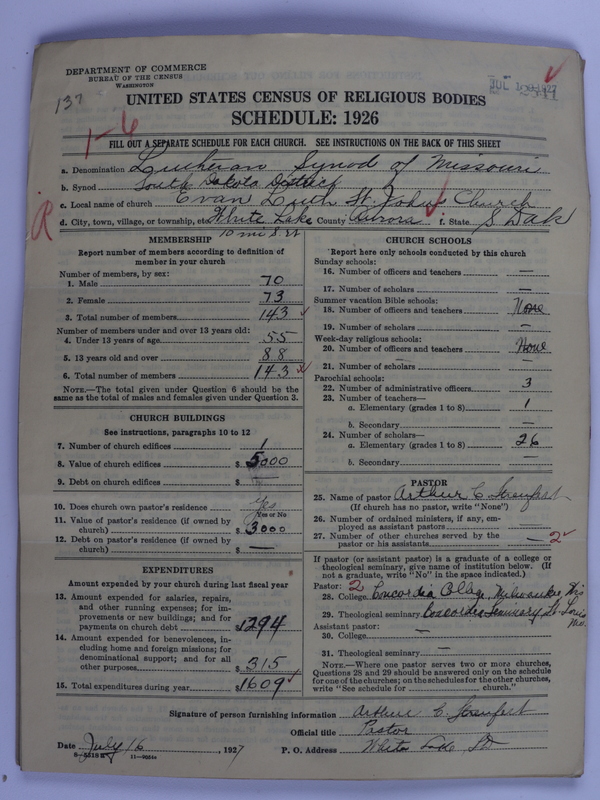 DEPARTMENT OF COMMERCE
BUREAU OF THE CENSUS
WASHINGTON
137
UNITED STATES CENSUS OF RELIGIOUS BODIES
SCHEDULE: 1926
1-6
FILL OUT A SEPARATE SCHEDULE FOR EACH CHURCH. SEE INSTRUCTIONS ON THE BACK OF THIS SHEET
a. Denomination Lutheran Synod of Missouri
b. Synod South Dakota District
c. Local name of church Evan Luth St. Johns Church
d. City, town, village, or township, etc. White Lake County Aurora f. State S Dak
R
10 mi S
MEMBERSHIP
Report number of members according to definition of member in your church
Number of members, by sex:
1. Male 70
2. Female 73
3. Total number of members 143
Number of members under and over 13 years old:
4. Under 13 years of age 55
5. 13 years old and over 88
6. Total number of members 143
NOTE.—The total given under Question 6 should be the
same as the total of males and females given under Question 3.
CHURCH BUILDINGS
See instructions, paragraphs 10 to 12
7. Number of church edifices 1
8. Value of church edifices $ 5000
9. Debt on church edifices $ —
10. Does church own pastor's residence? Yes
Yes or No
11. Value of pastor's residence (if owned by
church) $ 3000
12. Debt on pastor's residence (if owned by
church) $ —
EXPENDITURES
Amount expended by your church during last fiscal year
13. Amount expended for salaries, repairs,
and other running expenses; for im-
provements or new buildings; and for
payments on church debt $ 1294
14. Amount expended for benevolences, in-
cluding home and foreign missions; for
denominational support; and for all
other purposes $ 315
15. Total expenditures during year $ 1609
CHURCH SCHOOLS
Report here only schools conducted by this church
Sunday schools:
16. Number of officers and teachers —
17. Number of scholars —
Summer vacation Bible schools:
18. Number of officers and teachers None
19. Number of scholars —
Week-day religious schools:
20. Number of officers and teachers None
21. Number of scholars —
Parochial schools:
22. Number of administrative officers 3
23. Number of teachers—
a. Elementary (grades 1 to 8) 1
b. Secondary —
24. Number of scholars—
a. Elementary (grades 1 to 8) 26
b. Secondary —
PASTOR
25. Name of pastor Arthur C
(If church has no pastor, write "None")
26. Number of ordained ministers, if any, em-
ployed as assistant pastors
27. Number of other churches served by the
pastor or his assistants — 2
If pastor (or assistant pastor) is a graduate of a college or
theological seminary, give name of institution below. (If
not a graduate, write "No" in the space indicated.)
Pastor: 2 2
28. College Concordia College, Milwaukee, Wis
29. Theological seminary Concordia Seminary St. Louis
Mo.
Assistant pastor:
30. College —
31. Theological seminary —
NOTE.—Where one pastor serves two or more churches,
Questions 28 and 29 should be answered only on the schedule
for one of the churches; on the schedules for the other churches,
write "See schedule for church."
Signature of person furnishing information Arthur C.
Official title Pastor
Date July 16, 1927 P. O. Address White Lake SD
11—9554